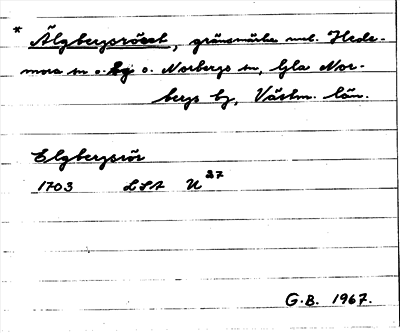 * Älgbergsröset, gränsmärke mel. Hede-
mora sn o. o. Norbergs sn, Gla Nor-
bergs by, Västm. län.
Elgbergsrör
1703 LSA U 27
G.B. 1967.